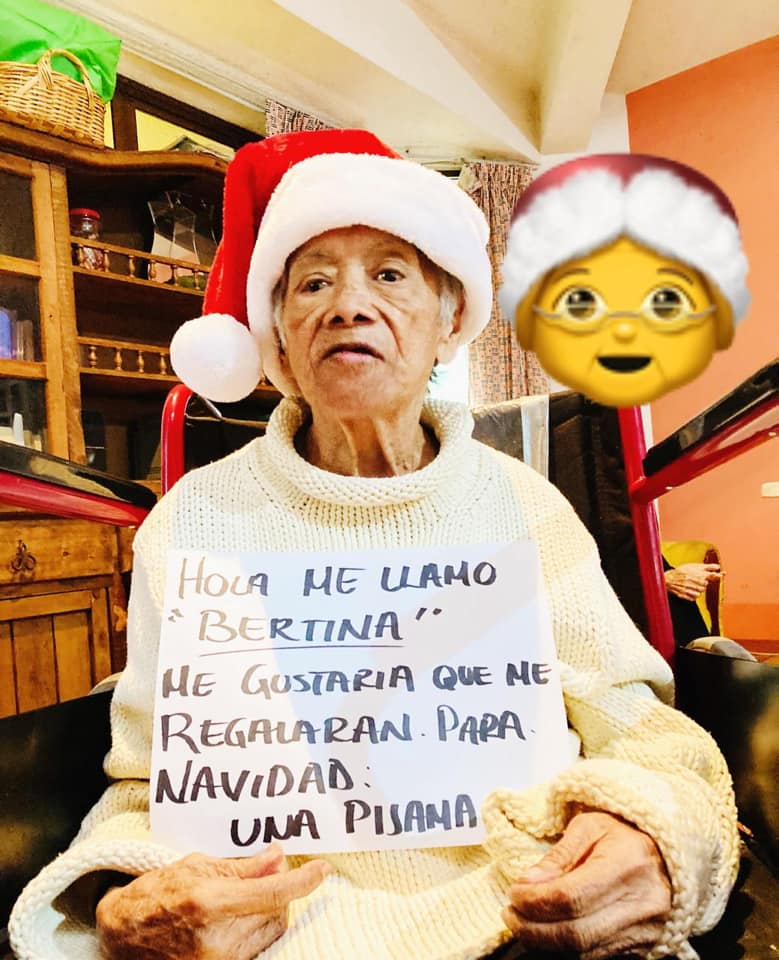 HOLA ME LLAMO
"BERTINA"
ME GUSTARIA QUE ME
REGALARAN. PARA.
NAVIDAD:
UNA PIJAMA